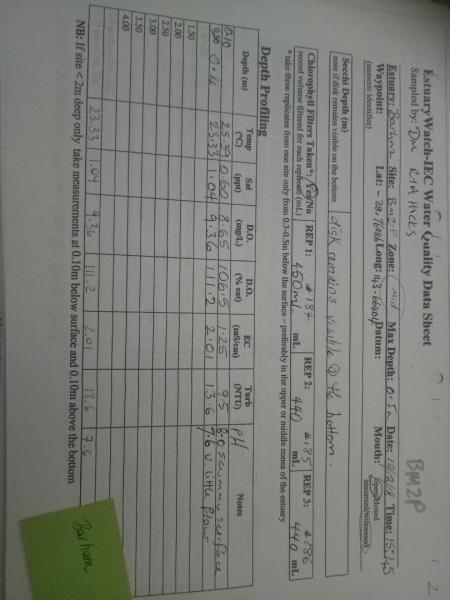 BM2P
2.
EstuaryWatch-IEC Water Quality Data Sheet
Sampled by: RIA Hicks
Estuary: Barham Site: BM2P Zone: Mid Max Depth: 0.5m Date: Time: 15:45
Waypoint: Lat: Long: Datum: Mouth: open/closed
(numeric identifier) assumed/witnessed
Secchi Depth (m) disk remains visible @ the bottom.
note if disk remains visible on the bottom
Chlorophyll Filters Taken*: Yes/No REP 1: #184 REP 2: #185 REP 3: #186
record volume filtered for each replicate (mL) 450ml mL 440 mL 440 mL
* take three replicates from one site only from 0.3-0.5m below the surface – preferably in the upper or middle zones of the estuary
Depth Profiling
Depth (m) Temp (°C) Sal (ppt) D.O. (mg/L) D.O. (% sat) EC (mS/cm) Turb (NTU) pH Notes
0.10 25.39 0.60 8.65 106.5 1.25 9.5 8.0 scummy surface
0.50 0.4 23.33 1.04 9.36 111.2 2.01 13.6 7.6 v. little flow
1.50
2.00
2.50
3.00
3.50
4.00
23.33 1.04 9.36 111.2 2.01 13.6 7.6
NB: If site <2m deep only take measurements at 0.10m below surface and 0.10m above the bottom
Barham